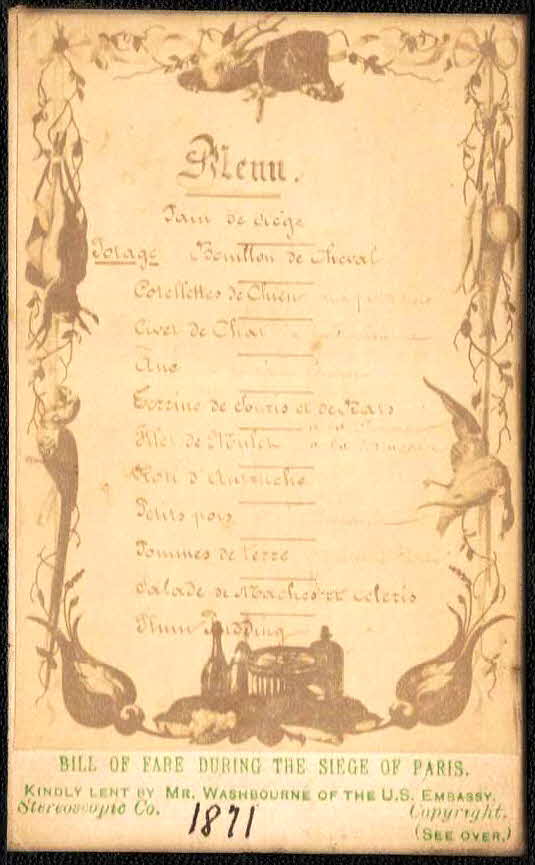 Menu.
Pain de siège
Potage Bouillon de Cheval
Cotellettes de Chien
Civet de Chat
Ane
Terrine de Souris et de Rats
Filet de Mulet à la
Roti d'Autruche
Petits pois
Pommes de terre
Salade de Maches et celeris
Plum Pudding
BILL OF FARE DURING THE SIEGE OF PARIS.
KINDLY LENT BY MR. WASHBOURNE OF THE U.S. EMBASSY.
Stereoscopic Co. Copyright.
1871
(SEE OVER.)